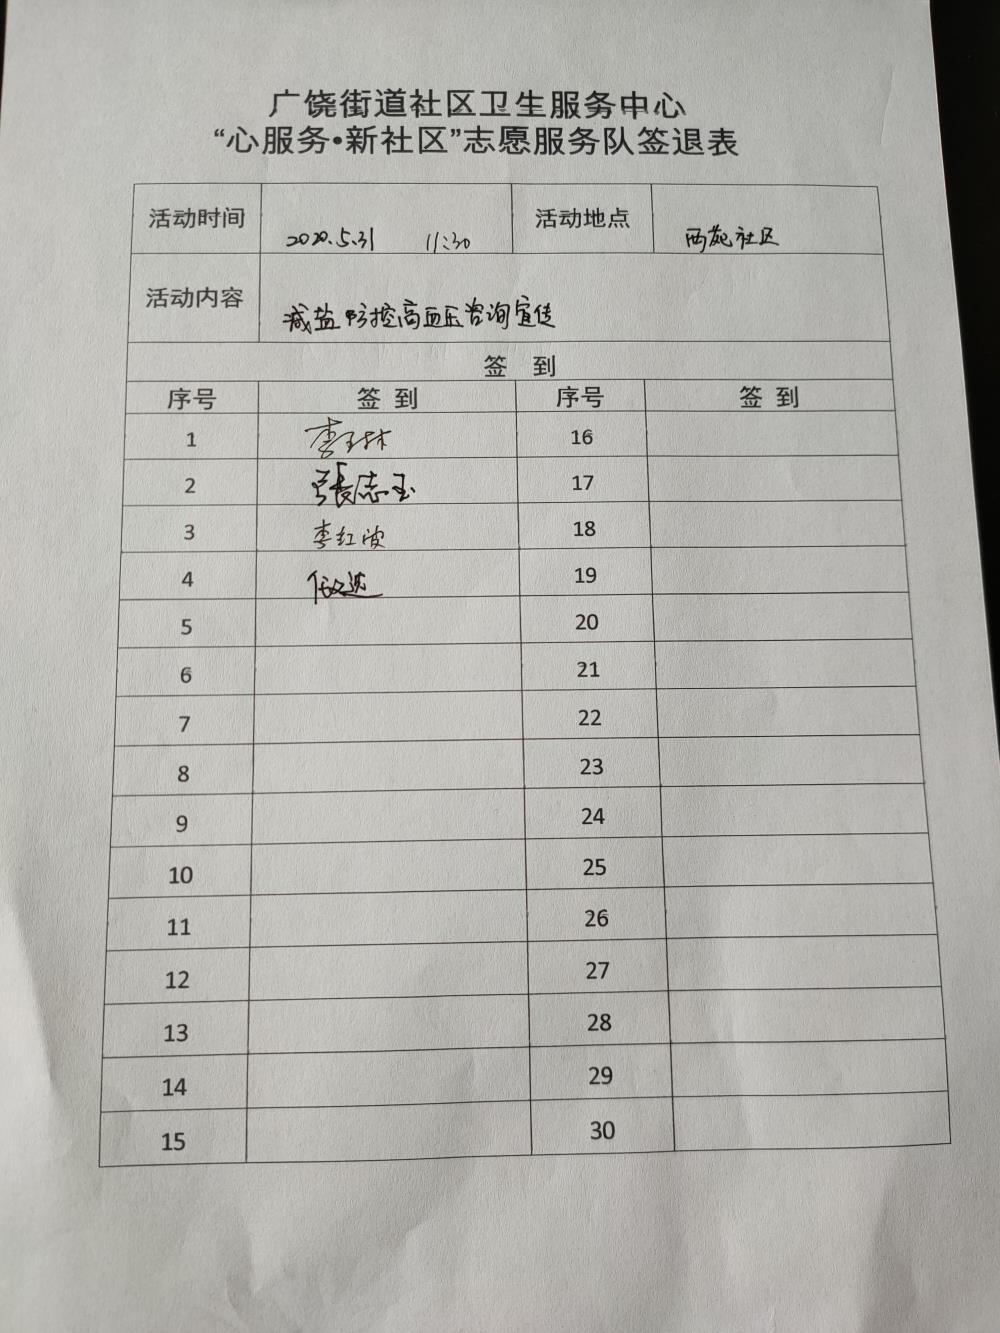 广饶街道社区卫生服务中心
“心服务•新社区”志愿服务队签退表
活动时间 2020.5.31 11:30 活动地点 西苑社区
活动内容 减盐防控高血压咨询宣传
签 到
序号 签 到 序号 签 到
1 李玉林 16
2 張志玉 17
3 李红波 18
4 19
5 20
6 21
7 22
8 23
9 24
10 25
11 26
12 27
13 28
14 29
15 30